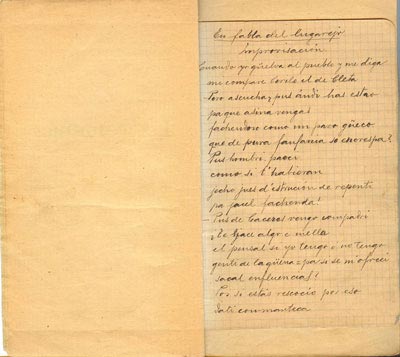 En fabla del lugarejo
improvisación
Cuando yo güelva al pueblo y me diga
mi compare Borels el de Cleta
Pero ascucha; pus ándi has estao
pa que asina vengas
fachendoso como un pavo güeco
que de pura fanfania se encrespa?
Pus hombri, paeci
como si t'hubieran
jecho jues d'estrución de repenti
pa paecel fachenda!
- Pus de Caceres vengo compadri
¿Te jace algo e mella
el pensal si yo tengo ó no tengo
genti de la güena pa si se m'ofreci
sacal enfluencias?
Pos si estás rescocío por eso
Dali con manteca